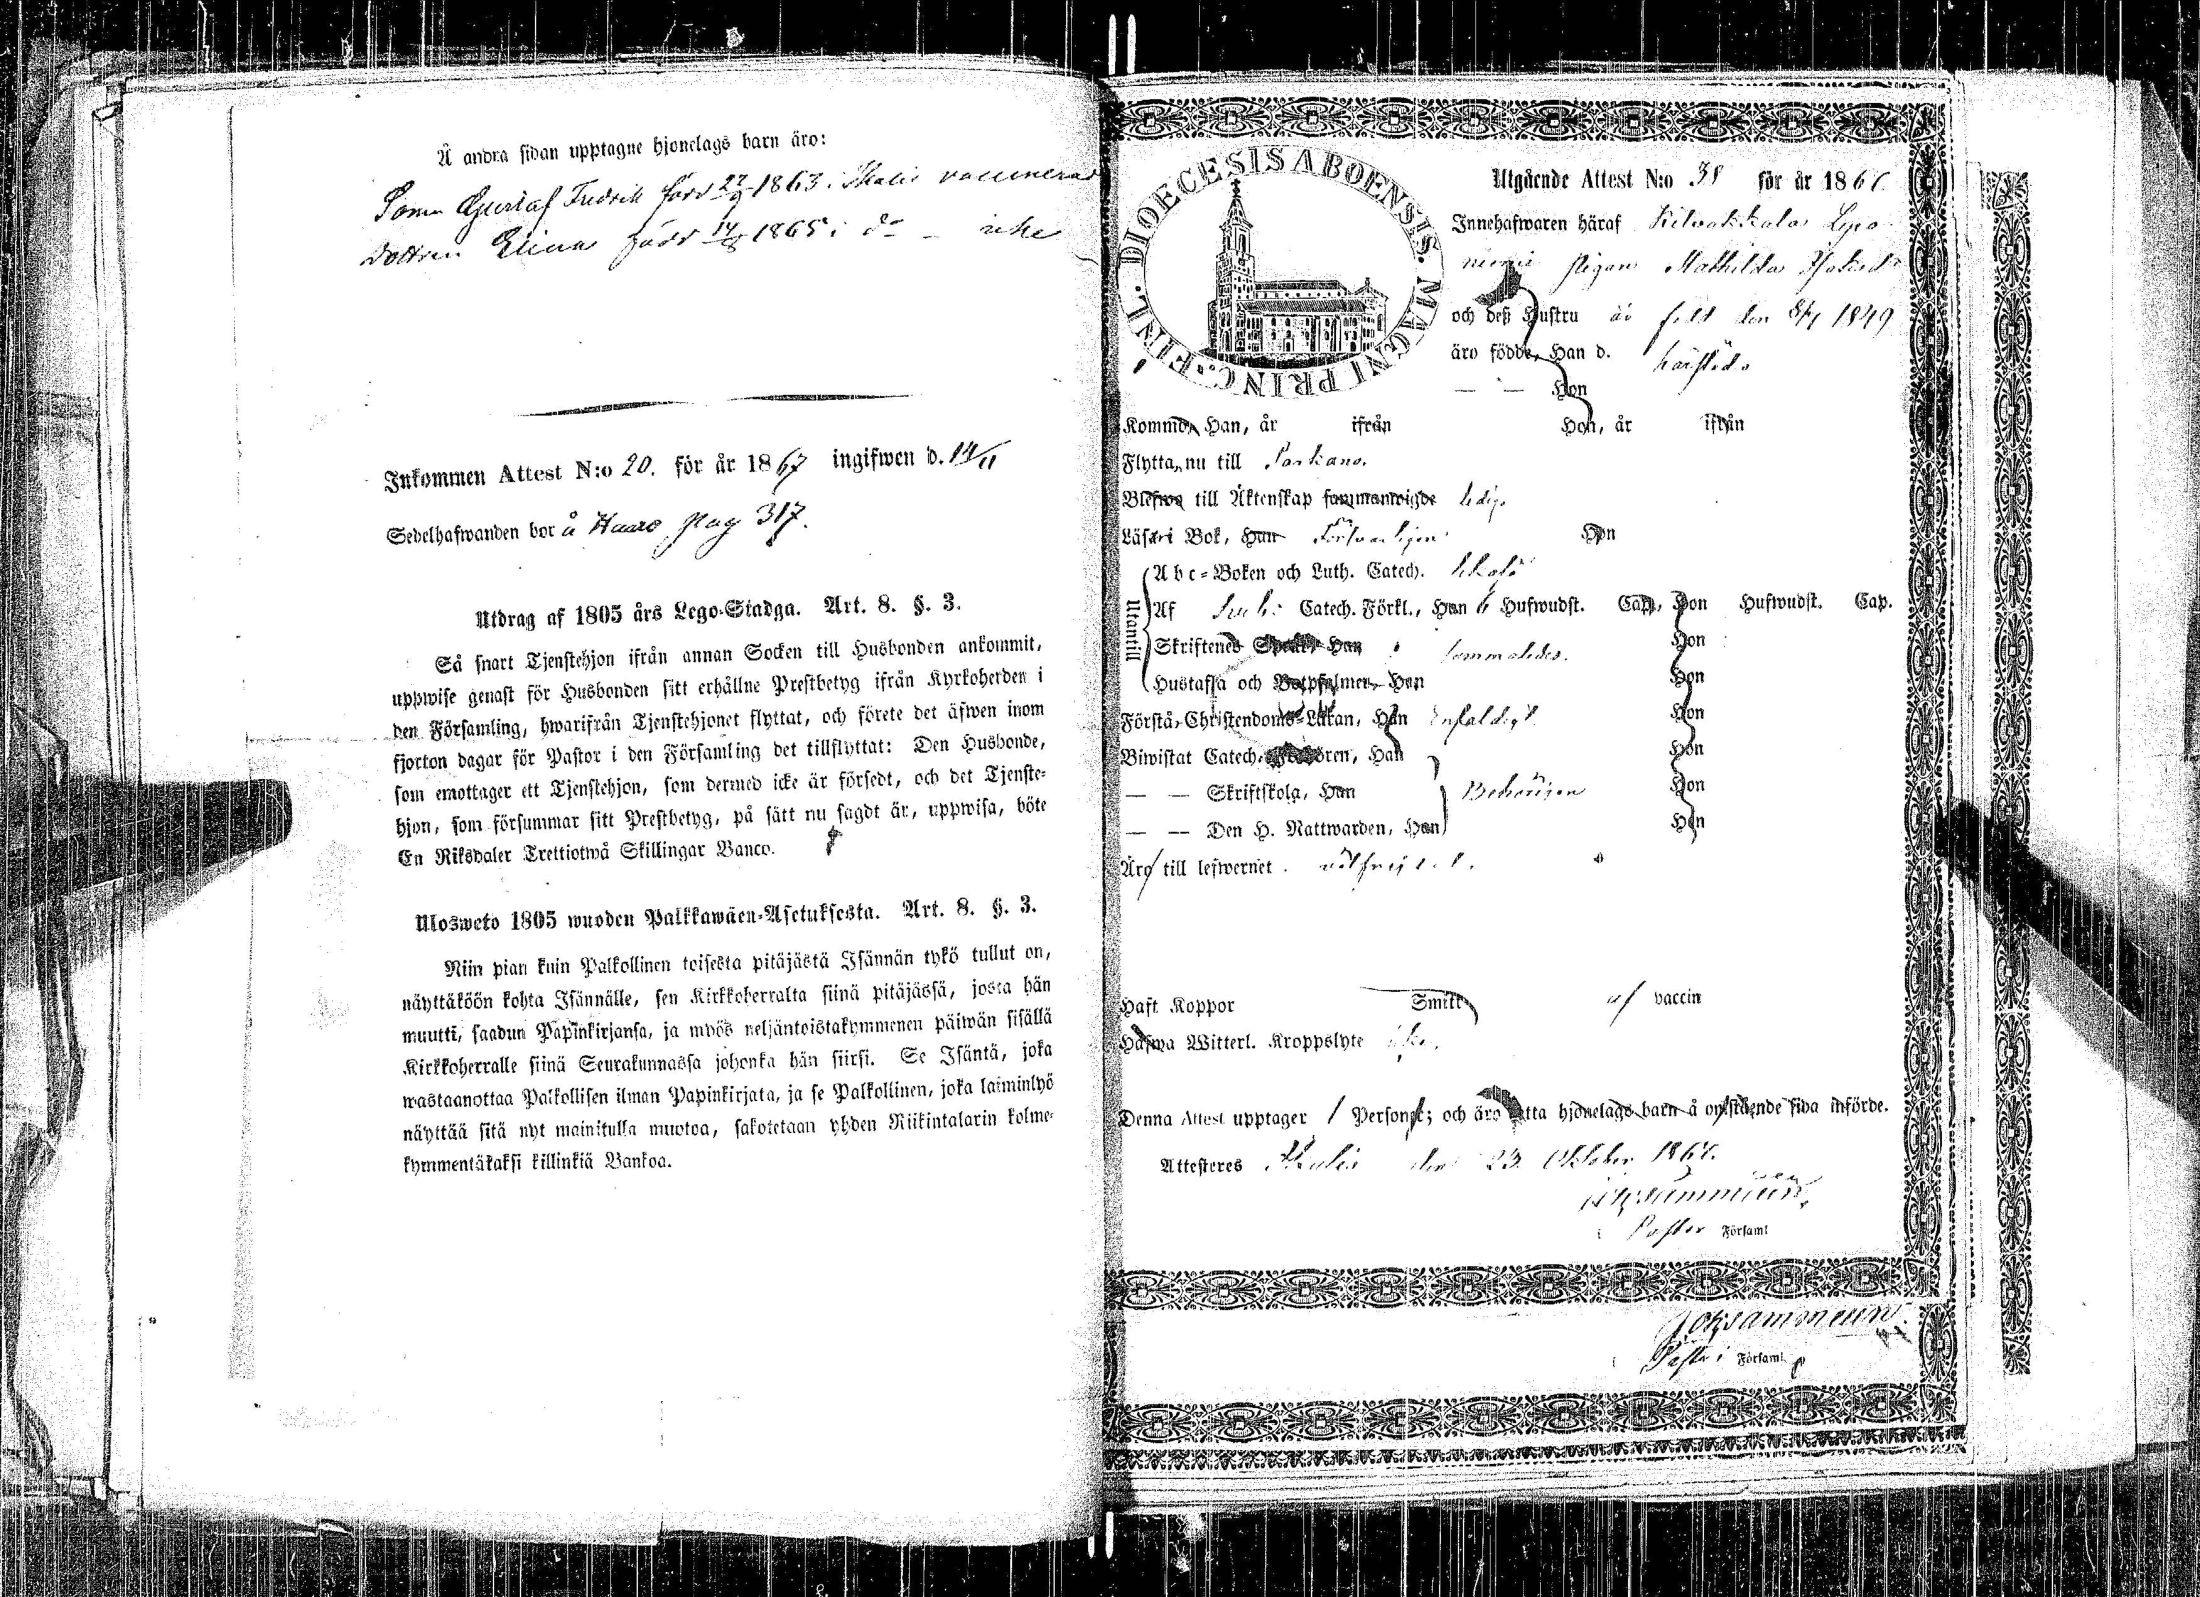 Å andra sidan upptagne hjonelags barn äro:
Sonen Gustaf Fredrik född 27/9 1863 i Ikalis vaccinerad
Dottren Elina född 14/8 1865 i do – icke
Inkommen Attest N:o 20. för år 1867 ingifwen d. 14/11
Sedelhafwanden bor å Haaro pag 317.
Utdrag af 1805 års Lego-Stadga. Art. 8. §. 3.
Så snart Tjenstehjon ifrån annan Socken till Husbonden ankommit,
uppwise genast för Husbonden sitt erhållne Prestbetyg ifrån Kyrkoherden i
den Församling, hwarifrån Tjenstehjonet flyttat, och förete det äfwen inom
fjorton dagar för Pastor i den Församling det tillflyttat: Den Husbonde,
som emottager ett Tjenstehjon, som dermed icke är försedt, och det Tjenste-
hjon, som försummar sitt Prestbetyg, på sätt nu sagdt är, uppwisa, böte
En Riksdaler Trettiotwå Skillingar Banco.
Ulosweto 1805 wuoden Palkkawäen-Asetuksesta. Art. 8. §. 3.
Niin pian kuin Palkollinen toisesta pitäjästä Isännän tykö tullut on,
näyttäköön kohta Isännälle, sen Kirkkoherralta siinä pitäjässä, josta hän
muutti, saadun Papinkirjansa, ja myös neljäntoistakymmenen päiwän sisällä
Kirkkoherralle siinä Seurakunnassa johonka hän siirsi. Se Isäntä, joka
wastaanottaa Palkollisen ilman Papinkirjata, ja se Palkollinen, joka laiminlyö
näyttää sitä nyt mainitulla muotoa, sakotetaan yhden Riikintalarin kolme-
kymmentäkaksi killinkiä Bankoa.
DIOECESIS ABOENSIS. MAGNI PRINC. FINL.
Utgående Attest N:o 38 för år 186
Innehafwaren häraf Kilwakkala
pigan Mathilda
och deß Hustru är född den 8/4 1849
äro födde, Han d. härstädes
— — Hon
Komma, Han, år ifrån Hon, år ifrån
Flytta, nu till Parkano.
Blefwo till Äktenskap sammanwigde ledig.
Läsa i Bok, Han Försvarligen Hon
Utantill
Abc-Boken och Luth. Catech. likaså
Af Catech. Förkl., Han 6 Hufwudst. Cap. Hon Hufwudst. Cap.
Skriftenes Han sammaledes. Hon
Hustafla och Botpsalmer, Han Hon
Förstå, Christendoms-Läran, Han enfaldigt Hon
Biwistat Catech. Han Hon
— — Skriftskola, Han Behörigen Hon
— — Den H. Nattwarden, Han Hon
Äro till lefwernet . välfrejdad.
Haft Koppor Smitt af vaccin
Hafwa Witterl. Kroppslyte icke.
Denna Attest upptager 1 Person; och äro hjonelags barn å omstående sida införde.
Attesteres Ikalis den 23 Oktober 186
Pastor Församl
Pastor i Församl